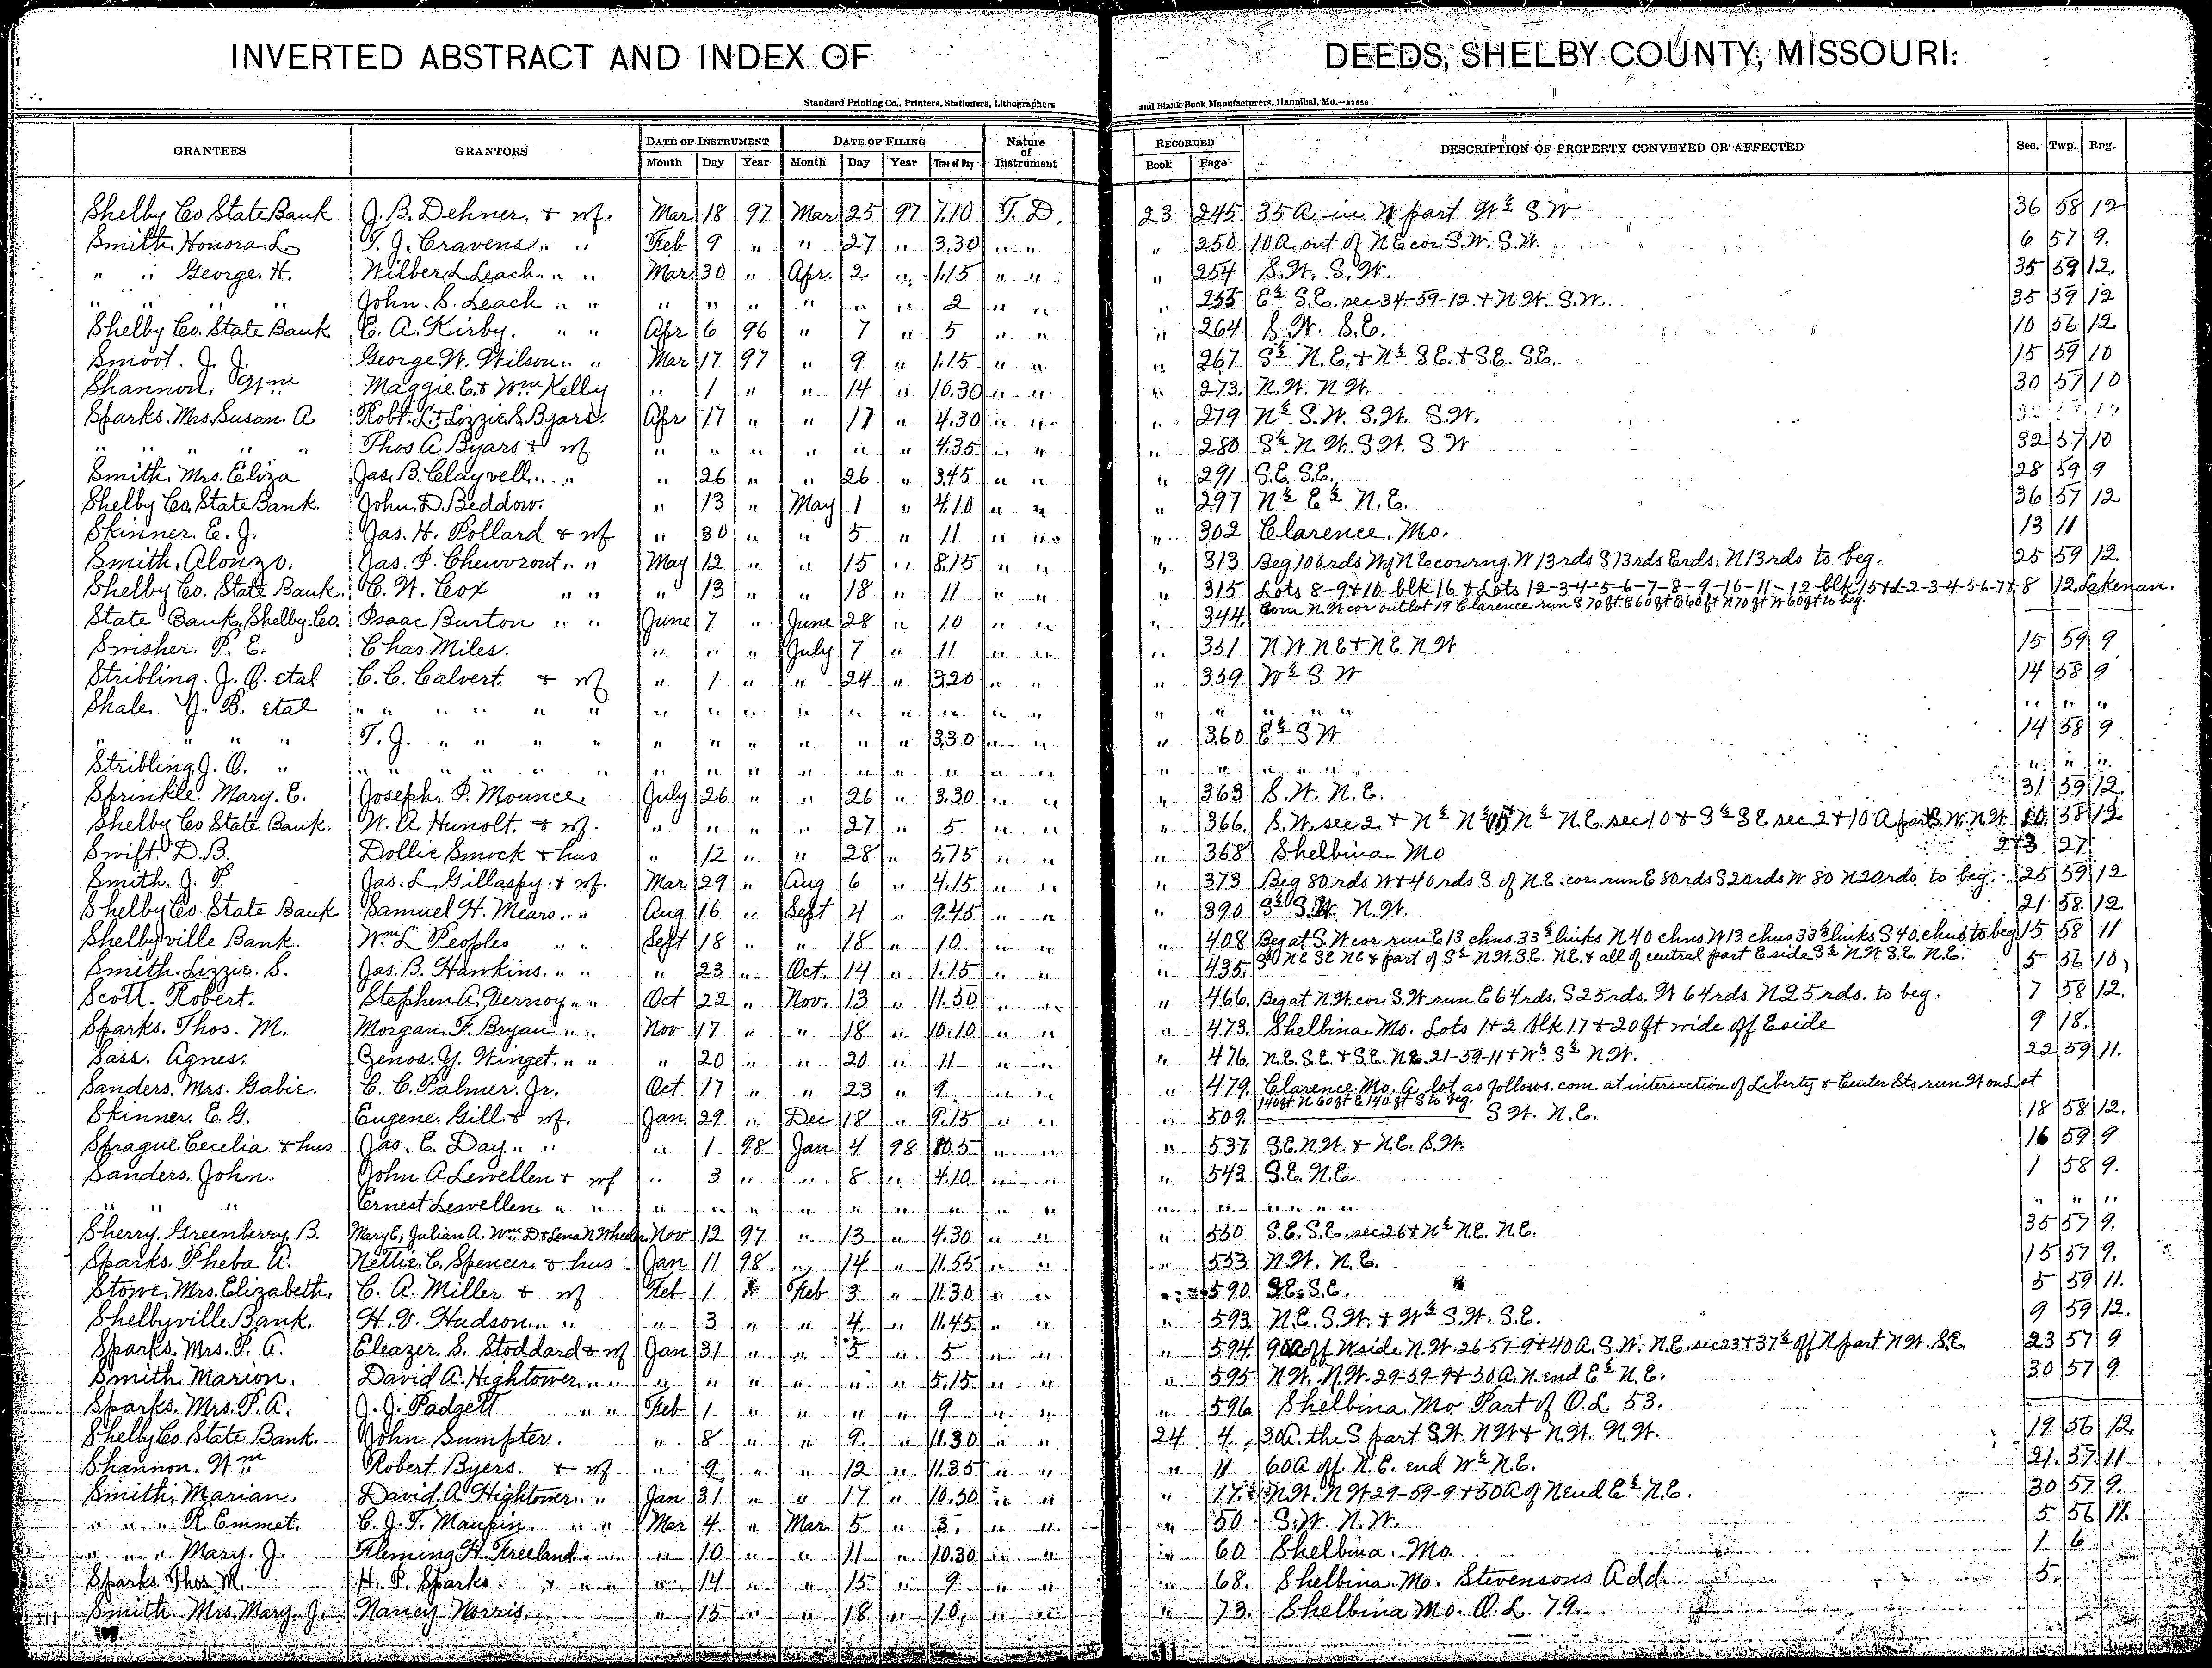 INVERTED ABSTRACT AND INDEX OF DEEDS, SHELBY COUNTY, MISSOURI.
Standard Printing Co., Printers, Stationers, Lithographers and Blank Book Manufacturers, Hannibal, Mo.
GRANTEES GRANTORS DATE OF INSTRUMENT DATE OF FILING Nature of Instrument RECORDED DESCRIPTION OF PROPERTY CONVEYED OR AFFECTED Sec. Twp. Rng.
Month Day Year Month Day Year Time of Day Book Page
Shelby Co State Bank J. B. Dehner, & wf. Mar 18 97 Mar 25 97 7.10 T. D. 23 245 35 A in N part W½ S W 36 58 12
Smith, Honora L. T. J. Cravens " " Feb 9 " " 27 " 3.30 " " " 250 10 A. out of N E cor S.W. S.W. 6 57 9.
" " George. H. Wilber L Leach " " Mar. 30 " Apr. 2 " 1.15 " " " 254 S.W. S.W. 35 59 12.
" " " " John. S. Leach " " " " " " " " 2 " " " 255 E½ S.E. sec 34-59-12. & N.W. S.W. 35 59 12
Shelby Co. State Bank E. A. Kirby. " " Apr 6 96 " 7 " 5 " " " 264 S.W. S.E. 10 56 12.
Smoot. J. J. George W. Wilson " " Mar 17 97 " 9 " 1.15 " " " 267 S½ N.E. & N½ S E. & S.E. S.E. 15 59 10
Shannon. Wm Maggie E. & Wm Kelly " 1 " " 14 " 10.30 " " " 273. N.W. N W. 30 57 10
Sparks. Mrs. Susan. A Robt. L. & Lizzie S. Byars. Apr 17 " " 17 " 4.30 " " " 279 N½ S.W. S.W. S.W.
" " " " Thos A Byars & wf " " " " " " 4.35 " " " 280 S½ N.W. S W. S W 32 57 10
Smith. Mrs. Eliza Jas. B. Clayvell " " " 26 " " 26 " 3.45 " " " 291 S.E. S.E. 28 59 9
Shelby Co. State Bank. John. D. Beddow. " 13 " May 1 " 4.10 " " " 297 N½ E½ N.E. 36 57 12
Skinner. E. J. Jas. H. Pollard & wf " 30 " " 5 " 11 " " " 302 Clarence, Mo. 13 11
Smith, Alonzo. Jas. P. Cheuvront " " May 12 " " 15 " 8.15 " " " 313 25 59 12.
Shelby Co. State Bank. C. W. Cox " " " 13 " " 18 " 11 " " " 315 Lots 8-9 & 10 blk 16 & Lots 12 Lakenan.
State Bank, Shelby Co. Isaac Burton " " June 7 " June 28 " 10 " " " 344 Com N.W cor outlot 19 Clarence run S 70 ft. E 60 ft N 70 ft W 60 ft to beg.
Swisher. P. E. Chas. Miles. " " " July 7 " 11 " " " 351 N W N E & N E. N W 15 59 9
Stribling. J. O. etal C. C. Calvert. & wf " 1 " " 24 " 3.20 " " " 359 W½ S W 14 58 9
Shale. J. B. etal " " " " " " " " " " " " " " " " " " " " " "
" " " " T. J. " " " " " " " " " 3.30 " " " 360 E½ S W 14 58 9
Stribling, J. O. " " " " " " " " " " " " " " " " " " " " " "
Sprinkle. Mary. E. Joseph. P. Mounce. July 26 " " 26 " 3.30 " " " 363 S.W. N.E. 31 59 12.
Shelby Co State Bank. W. A. Hunolt. & wf. " " " " 27 " 5 " " " 366. S.W. sec 2 & N½ N½ N.E. sec 10 & S½ S E sec 2 & 10 A part S.W. N.W 10 58 12
Swift. D. B. Dollie Smock & hus " 12 " " 28 " 5.15 " " " 368 Shelbina Mo 2 & 3 27
Smith. J. P. Jas. L. Gillaspy. & wf. Mar 29 " Aug 6 " 4.15 " " " 373 Beg 80 rds W & 40 rds S. of N.E. cor. run E 80 rds S 20 rds W 80 N 20 rds to beg. 25 59 12
Shelby Co. State Bank Samuel H. Mears " " Aug 16 " Sept 4 " 9.45 " " " 390 S½ S.W. N.W. 21 58 12.
Shelbyville Bank. Wm L Peoples " " Sept 18 " " 18 " 10 " " " 408 Beg at S.W cor run E 13 chns. 33⅓ links N 40 chns W 13 chns 33⅓ links S 40 chns to beg 15 58 11
Smith. Lizzie. S. Jas. B. Hawkins. " " " 23 " Oct. 14 " 1.15 " " " 435. S½ N E S E N E & part of S½ N.W. S.E. N.E. & all of central part E side S½ N W S.E. N.E. 5 56 10
Scott. Robert. Stephen A. Vernoy " " Oct 22 " Nov. 13 " 11.50 " " " 466. Beg at N.W. cor S.W run E 64 rds. S 25 rds. W 64 rds N 25 rds. to beg. 7 58 12.
Sparks. Thos. M. Morgan. F. Bryan " " Nov 17 " " 18 " 10.10 " " " 473. Shelbina Mo. Lots 1 & 2 blk 17 & 20 ft wide off E side 9 18.
Sass. Agnes. Zenos. Y. Winget. " " " 20 " " 20 " 11 " " " 476. N.E. S.E. & S.E. N E. 21-59-11 & W½ S½ N W. 22 59 11.
Sanders. Mrs. Gabie. C. C. Palmer. Jr. Oct 17 " " 23 " 9 " " " 479. Clarence. Mo. A lot as follows. com. at intersection of Liberty & Center Sts. run W on st
140 ft N 60 ft E 140 ft S to beg.
Skinner. E. G. Eugene. Gill & wf. Jan 29 " Dec 18 " 9.15 " " " 509. S W. N.E. 18 58 12.
Sprague. Cecelia & hus Jas. E. Day " " " 1 98 Jan 4 98 " " " 537 S.E. N.W. & N.E. S.W. 16 59 9
Sanders. John. John A Lewellen & wf " 3 " " 8 " 4.10 " " " 543 S.E. N.E. 1 58 9.
" " Ernest Lewellen " " " " " " " " " " " " " " " " " " "
Sherry, Greenberry. B. Mary E, Julian A. Wm D & Lena N Wheeler Nov 12 97 " 13 " 4.30 " " " 550 S.E. S.E. sec 26 & N½ N.E. N.E. 35 57 9.
Sparks. Pheba A. Nettie C. Spencer & hus Jan 11 98 " 14 " 11.55 " " " 553 N.W. N.E. 15 57 9.
Stowe, Mrs. Elizabeth. C. A. Miller & wf Feb 1 " Feb 3 " 11.30 " " " 590 S.E. S.E. 5 59 11.
Shelbyville Bank. H. V. Hudson " " " 3 " " 4 " 11.45 " " " 593 N.E. S.W. & W½ S.W. S.E. 9 59 12.
Sparks. Mrs. P. A. Eleazer. S. Stoddard & wf Jan 31 " " 5 " 5 " " " 594 off W side N.W. 26-57-9 & 40 A. S.W. N.E. sec 23 & 37½ off N part N W. S.E. 23 57 9
Smith. Marion. David A. Hightower " " " " " " " " 5.15 " " " 595 N W. N.W. 29-59-9 & 50 A. N. end E½ N.E. 30 57 9
Sparks. Mrs. P. A. J. J. Padgett " " Feb 1 " " " " 9 " " " 596 Shelbina Mo Part of O.L 53.
Shelby Co State Bank. John Sumpter. " 8 " " 9. " 11.30 " " 24 4 30 A. the S part S.W. N W & N.W. N.W. 19 56 12.
Shannon. Wm Robert Byers. & wf " 9 " " 12 " 11.35 " " " 11 60 A off N.E. end W½ N.E. 21 57 11
Smith. Marian. David A Hightower " " Jan 31 " " 17 " 10.50 " " " 17. N.W. N W 29-59-9 & 50 A of N end E½ N.E. 30 57 9.
" " R. Emmet. C. J. T. Maupin. " " Mar 4 " Mar. 5 " 3. " " " 50 S.W. N.W. 5 56 11.
" " Mary. J. Fleming H. Freeland " " " 10 " " 11 " 10.30 " " " 60 Shelbina. Mo 1 6
Sparks Thos M. H. P. Sparks " " " 14 " " 15 " 9 " " " 68. Shelbina. Mo. Stevensons Add 5
Smith Mrs Mary. J. Nancy Norris. " 15 " " 18 " 10 " " " 73. Shelbina Mo. O.L. 79.